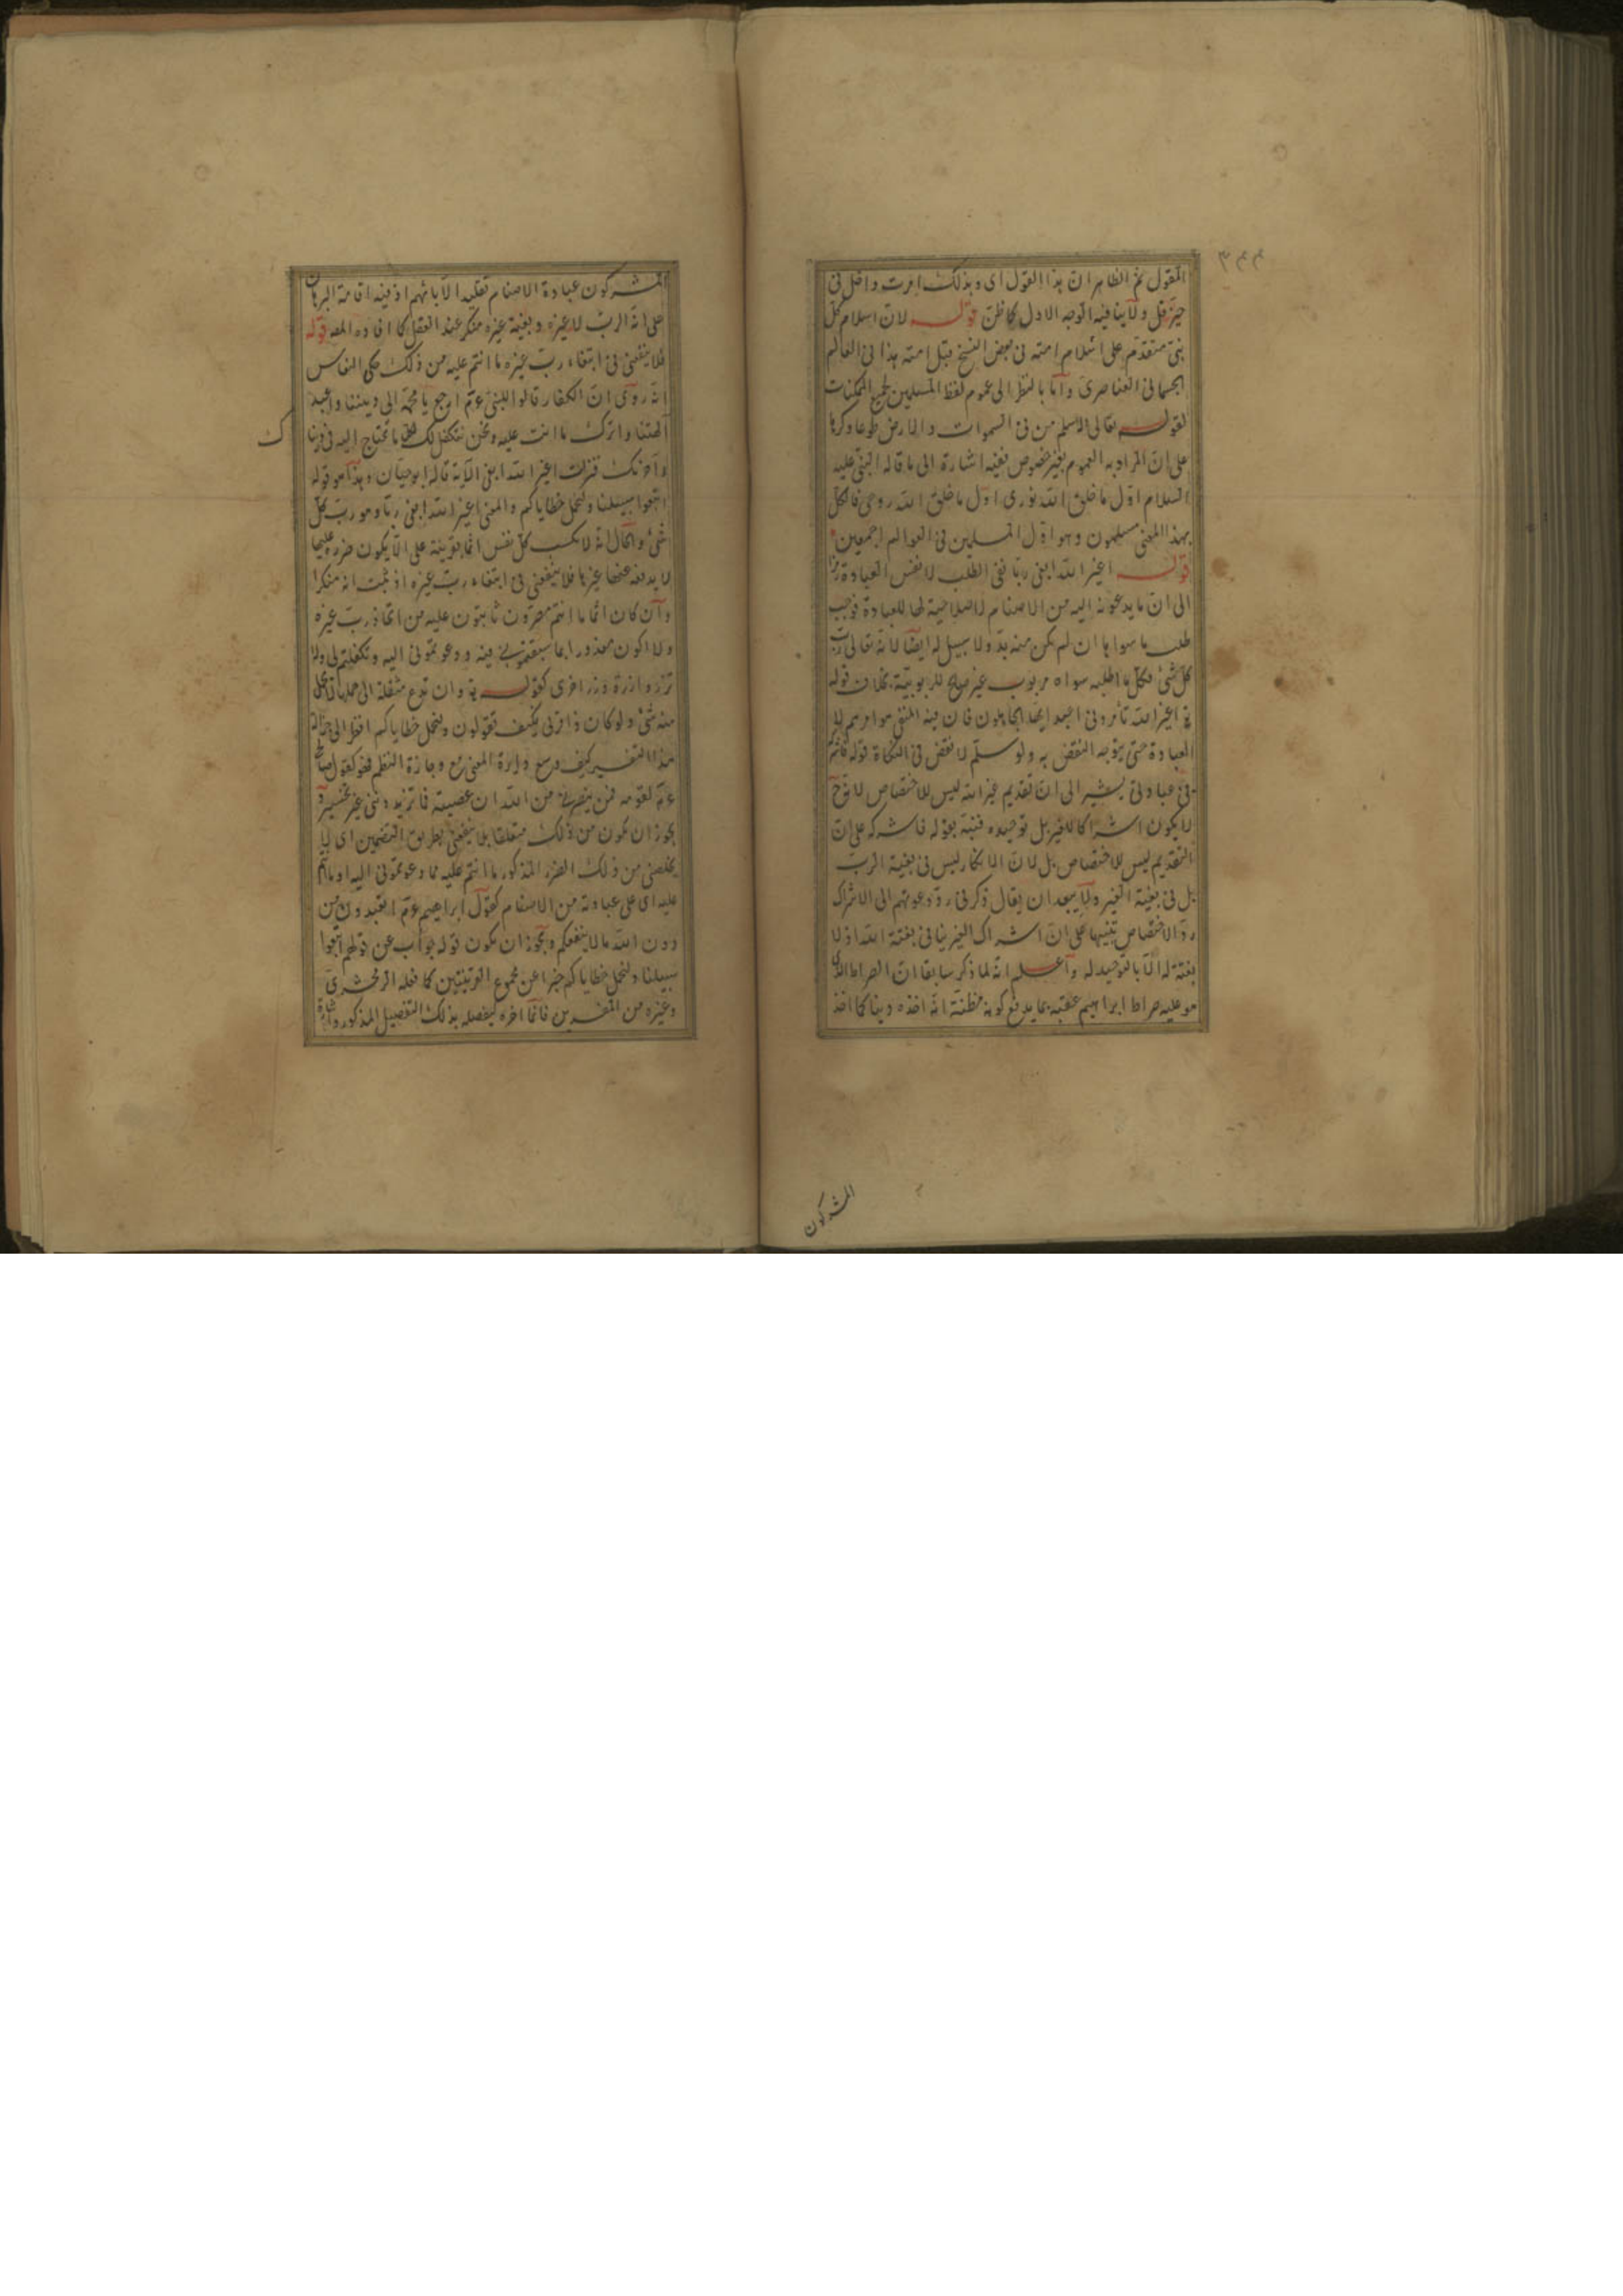 ٣٤٤
المقول ثم الظاهر ان هذا القول اى وبذلك امرت داخل فى
حيز قل ولا ينافيه الوجه الاول كما ظن قوله لان اسلام كل
نبى متقدم على اسلام امته فى بعض النسخ قبل امته هذا فى العالم
الجسمانى العناصرى واما بالنظر الى عموم لفظ المسلمين لجميع الممكنات
لقوله تعالى اسلم من فى السموات والارض طوعا وكرها
على ان المراد به العموم بغير خصوص ففيه اشارة الى ما قاله النبى عليه
السلام اول ما خلق الله نورى اول ما خلق الله روحى فالكل
بهذا المعنى مسلمون وهو اول المسلمين فى العوالم اجمعين
قوله اغير الله ابغى ربا نفى الطلب لا نفس العبادة رمزا
الى ان ما يدعونه اليه من الاصنام لا صلاحية لها للعبادة فوجب
طلب ما سواها ان لم يكن منه بد ولا سبيل له ايضا لانه تعالى رب
كل شئ فكل ما اطلبه سواه مربوب غير صالح للربوبية بخلاف قوله
تع اغير الله تأمرونى اعبد ايها الجاهلون فان فيه المنفى هو امرهم لا
العبادة حتى يتوجه النقض به ولو سلم لا نقض فى النكاة قوله فاشركه
فى عبادتى يشير الى ان تقديم غير الله ليس للاختصاص لانه ح
لا يكون اشراكا للغير بل توحيده فنبه بقوله فاشركه على ان
التقديم ليس للاختصاص بل لان الانكار ليس فى بغية الرب
بل فى بغية الغير ولا يبعد ان يقال ذكر فى رد دعوتهم الى الاشراك
رد الاختصاص تنبيها على ان اشراك الغير ينافى بغية الله اذ لا
بغية له الا بالتوحيد له واعلم انه لما ذكر سابقا ان الصراط الذى
هو عليه صراط ابراهيم عقبه بما يدفع كونه مظنة انه اخذه دينا كما اخذ
المشركون
المشركون عبادة الاصنام تقليدا لآبائهم اذ فيه اقامة البرهان
على انه الرب لا غيره وبغية غيره منكر عند العقل كما افاده المص قوله
فلا ينفعنى فى ابتغاء رب غيره ما انتم عليه من ذلك حكى النقاش
انه روى ان الكفار قالوا للنبى عم ارجع يا محمد الى ديننا واعبد
آلهتنا واترك ما انت عليه ونحن نتكفل لك بكل ما تحتاج اليه فى دنياك
وآخرتك فنزلت اغير الله ابغى الآية قاله ابو حيان وهذا هو قوله
اتبعوا سبيلنا ولنحمل خطاياكم والمعنى اغير الله ابغى ربا وهو رب كل
شئ والحال انه لا تكسب كل نفس اثما بقرينة على الا يكون ضرره عليها
لا يدفعه عنها غيرها فلا ينفعنى فى ابتغاء رب غيره اذ ثبت انه منكرا
وان كان اثما ما انتم مصرون ثابتون عليه من اتخاذ رب غيره
ولا اكون معذورا بما سبقتمونى فيه ودعوتمونى اليه وتكفلتم لى ولا
تزر وازرة وزر اخرى كقوله تع وان تدع مثقلة الى حملها لا يحمل
منه شئ ولو كان ذا قربى فكيف تقولون ولنحمل خطاياكم انظر الى جزالة
هذا التفسير كيف وسع دايرة المعنى مع وجازة النظم فهو كقول صالح
عم لقومه فمن ينصرنى من الله ان عصيته فما تزيدوننى غير تخسير و
يجوز ان يكون من ذلك متعلقا بلا ينفعنى بطريق التضمين اى لا
يخلصنى من ذلك الضرر المذكور ما انتم عليه مما دعوتمونى اليه او ما انتم
عليه اى على عبادته من الاصنام كقول ابراهيم عم اتعبدون من
دون الله ما لا ينفعكم ويجوز ان يكون قوله جواب عن قولهم اتبعوا
سبيلنا ولنحمل خطاياكم خبرا عن مجموع القرينتين كما فعله الزمخشرى
وغيره من المفسرين فانما اخره ليفصله بذلك التفصيل المذكور واشارة